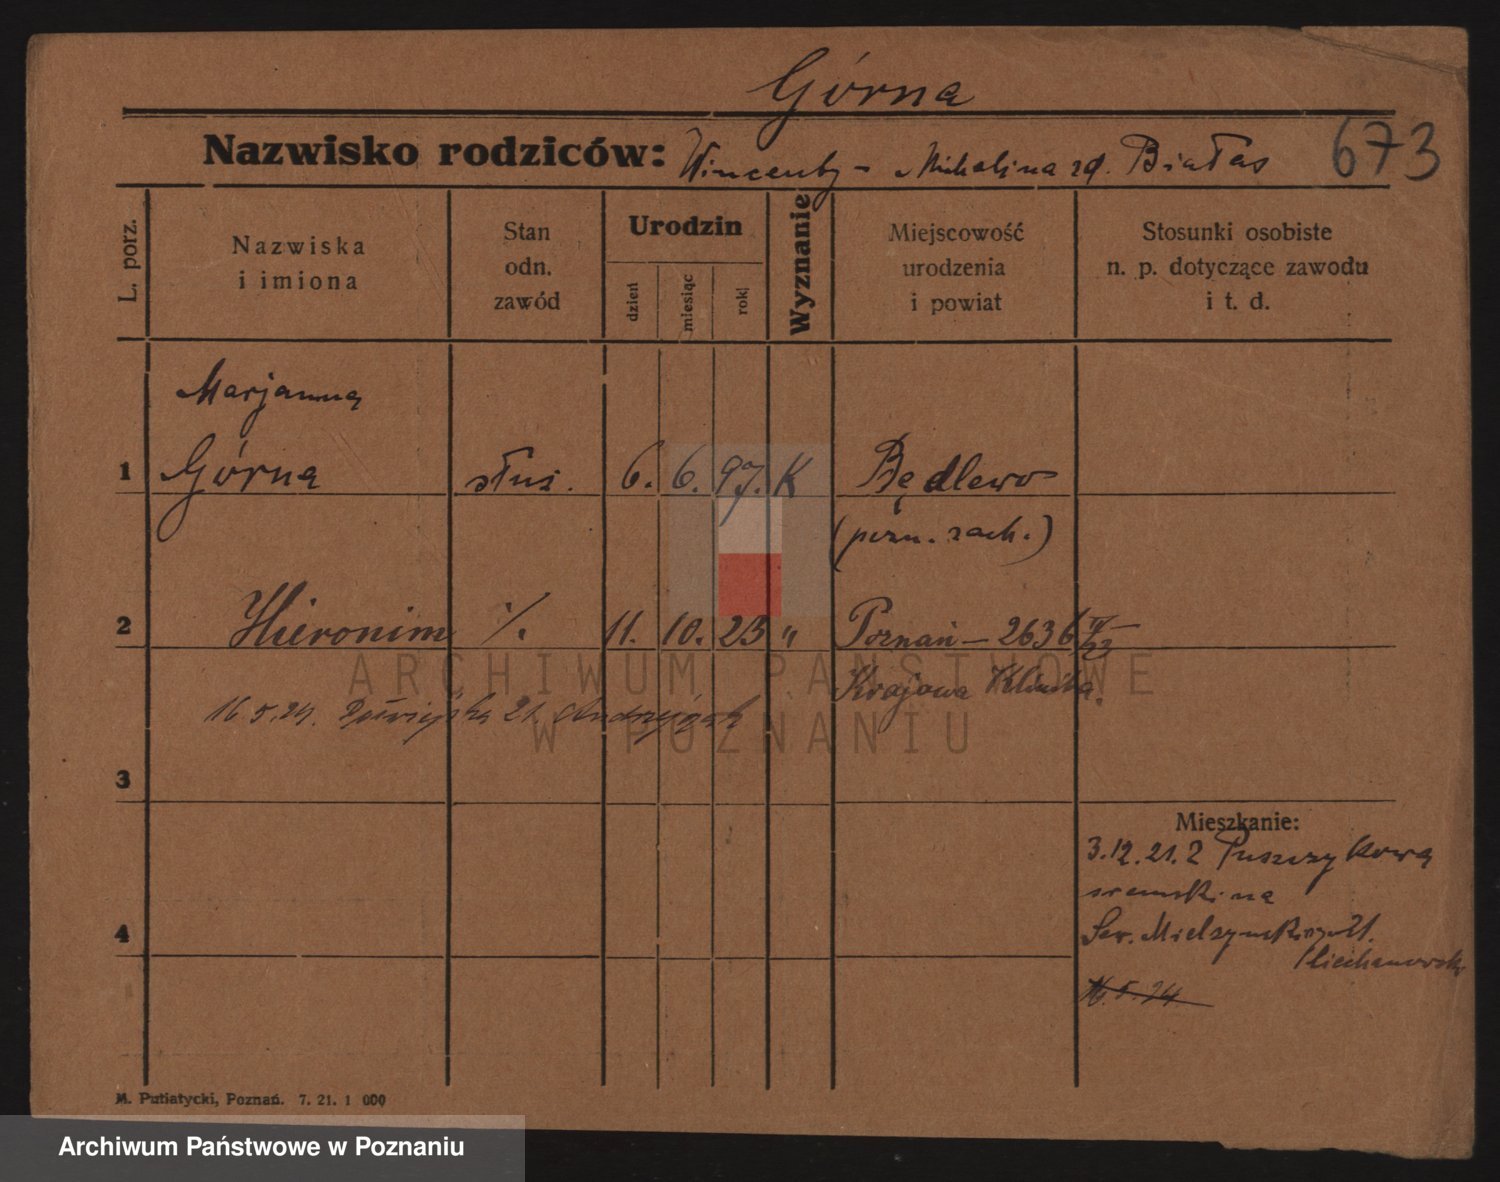 Górna
Nazwisko rodziców: Wincenty - Michalina zd. Białas 673
L. porz.
Nazwiska
i imiona
Stan
odn.
zawód
Urodzin
dzień
miesiąc
rok
Wyznanie
Miejscowość
urodzenia
i powiat
Stosunki osobiste
n. p. dotyczące zawodu
i t. d.
Marjanna
1 Górna służ. 6. 6. 97. K Będlewo
(pozn. zach.)
2 Hieronim ·/. 11. 10. 23 " Poznań - 2636
Krajowa Klinika.
16.5.24. 21.
3
Mieszkanie:
3.12.21. Z Puszczykowa
Sew. Mielżyńskiego 21.
Ciechanowski
4
16.5.24
M. Putiatycki, Poznań. 7. 21. 1 000
ARCHIWUM PAŃSTWOWE
W POZNANIU
Archiwum Państwowe w Poznaniu